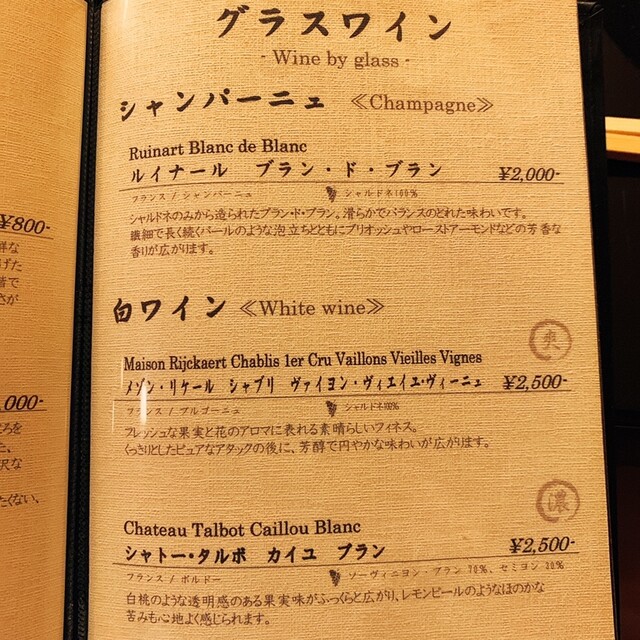 グラスワイン
- Wine by glass -
シャンパーニュ ≪Champagne≫
Ruinart Blanc de Blanc
ルイナール ブラン・ド・ブラン ¥2,000-
フランス / シャンパーニュ シャルドネ100%
シャルドネのみから造られたブラン・ド・ブラン。滑らかでバランスのとれた味わいです。
繊細で長く続くパールのような泡立ちとともにブリオッシュやローストアーモンドなどの芳香な
香りが広がります。
白ワイン ≪White wine≫
爽
Maison Rijckaert Chablis 1er Cru Vaillons Vieilles Vignes
メゾン・リケール シャブリ ヴァイヨン・ヴィエイユ・ヴィーニュ ¥2,500-
フランス / ブルゴーニュ シャルドネ100%
フレッシュな果実と花のアロマに表れる素晴らしいフィネス。
くっきりとしたピュアなアタックの後に、芳醇で円やかな味わいが広がります。
濃
Chateau Talbot Caillou Blanc
シャトー・タルボ カイユ ブラン ¥2,500-
フランス / ボルドー ソーヴィニヨン・ブラン 70%、セミヨン 30%
白桃のような透明感のある果実味がふっくらと広がり、レモンピールのようなほのかな
苦みも心地よく感じられます。
¥800-
,000-